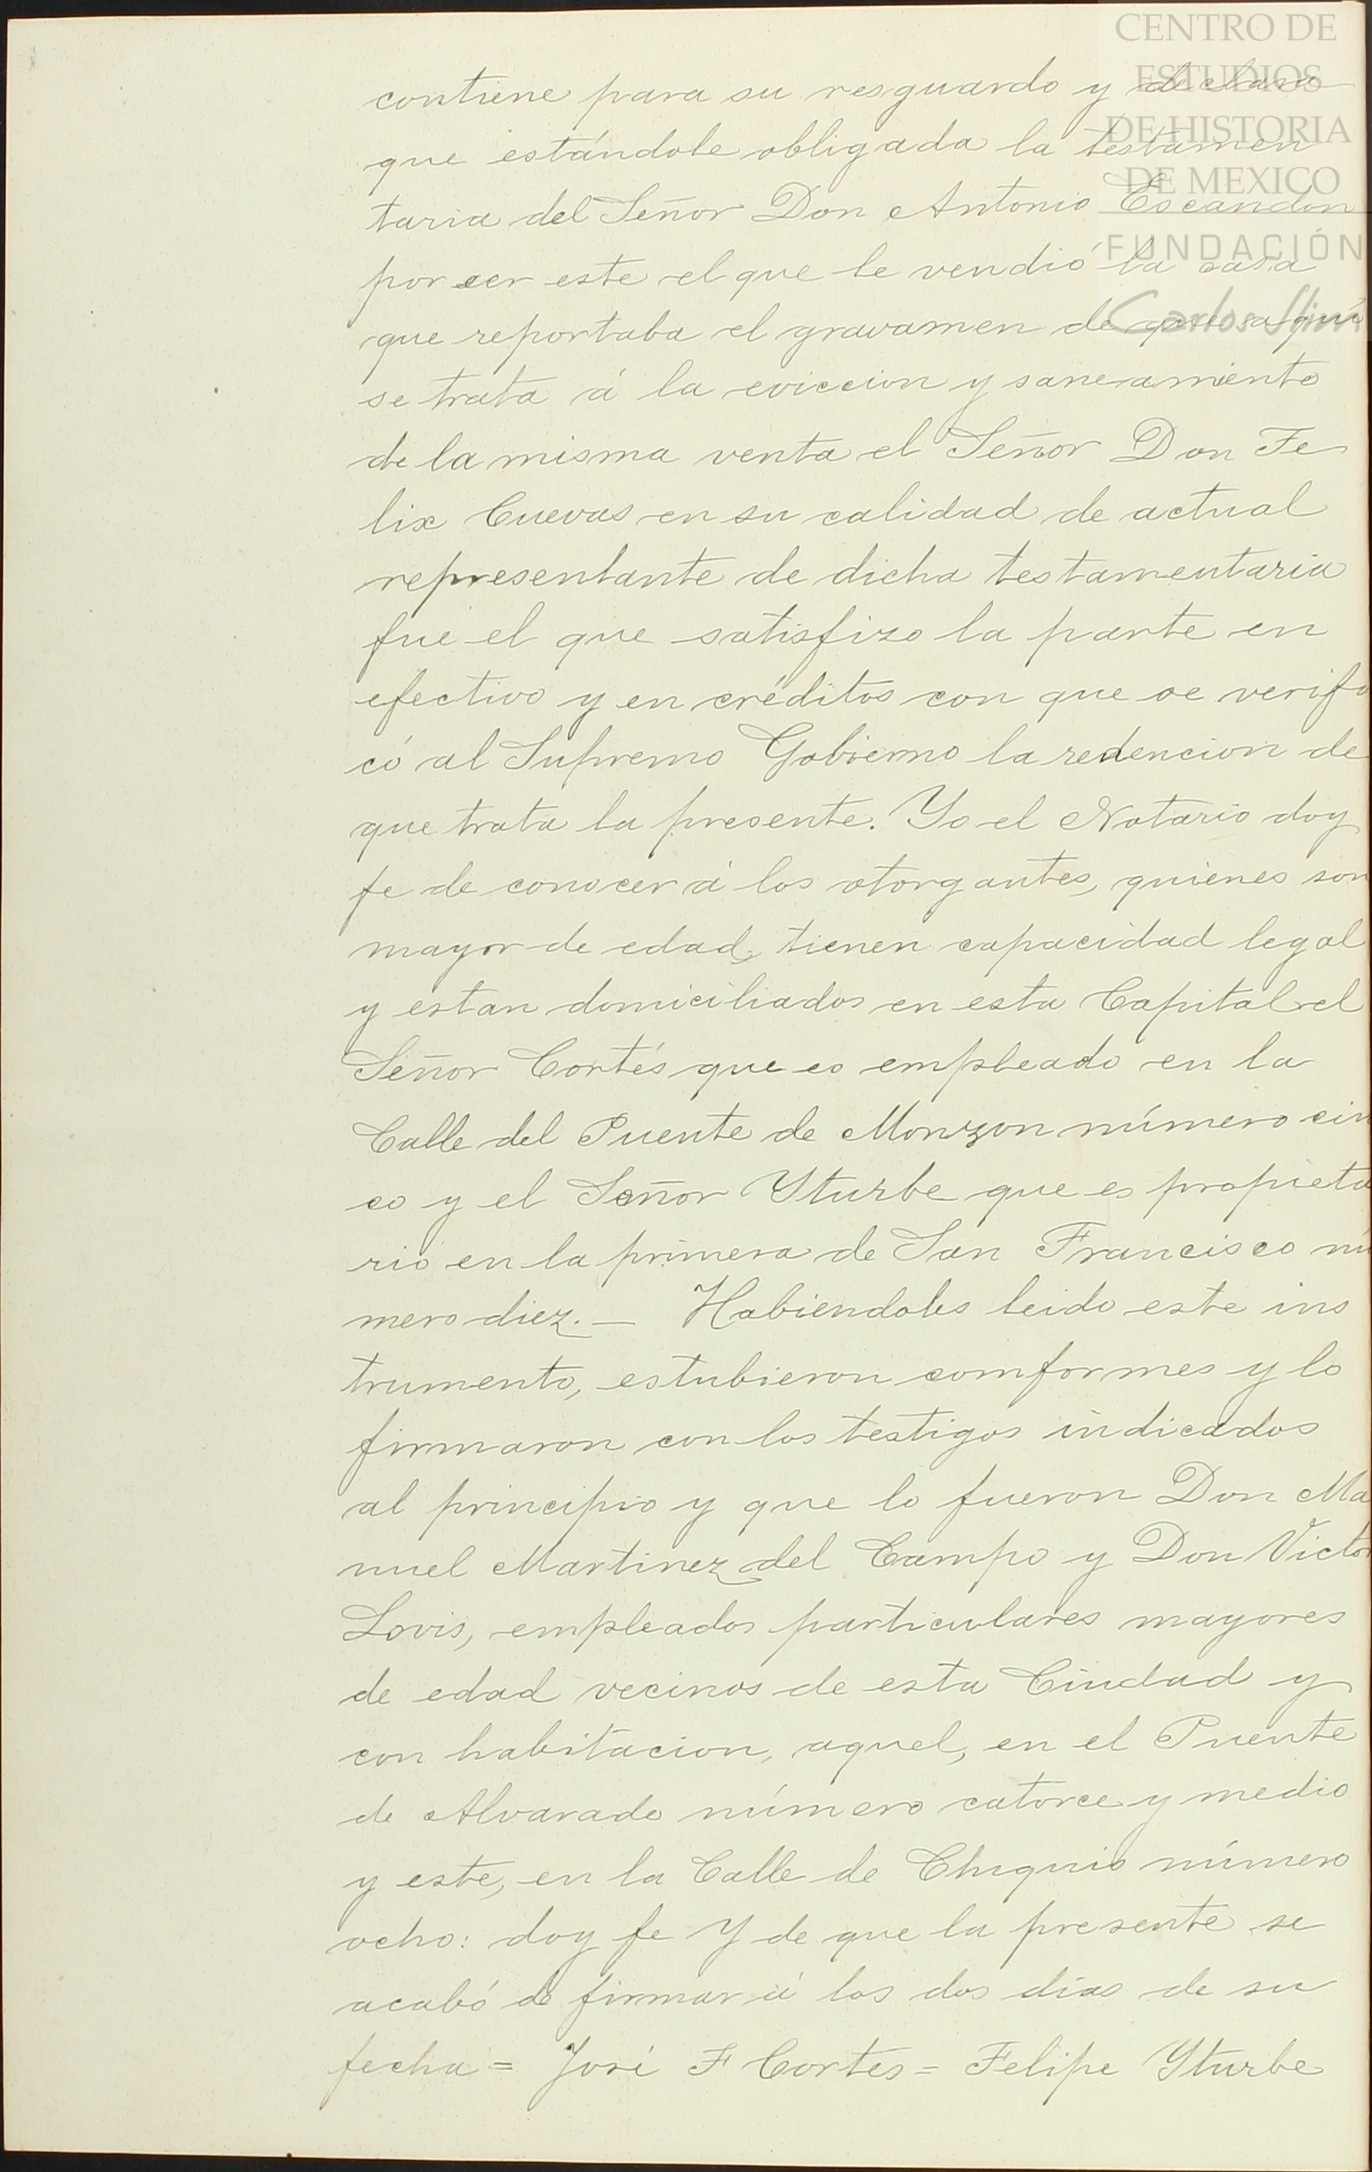 CENTRO DE
ESTUDIOS
DE HISTORIA
DE MEXICO
FUNDACIÓN
Carlos Slim
contiene para su resguardo y declara
que estándole obligada la testamen
taria del Señor Don Antonio Escandon
por ser este el que le vendió la casa
que reportaba el gravamen de que aquí
se trata á la eviccion y saneamiento
de la misma venta el Señor Don Fe
lix Cuevas en su calidad de actual
representante de dicha testamentaria
fue el que satisfizo la parte en
efectivo y en créditos con que se verifi
có al Supremo Gobierno la redencion de
que trata la presente. Yo el Notario doy
fe de conocer á los otorgantes, quienes son
mayor de edad, tienen capacidad legal
y estan domiciliados en esta Capital el
Señor Cortés que es empleado en la
Calle del Puente de Monzon número cin
co y el Señor Yturbe que es propieta
rio en la primera de San Francisco nu
mero diez. — Habiendoles leido este ins
trumento, estubieron comformes y lo
firmaron con los testigos indicados
al principio y que lo fueron Don Ma
nuel Martinez del Campo y Don Victor
Lovis, empleados particulares mayores
de edad vecinos de esta Ciudad y
con habitacion, aquel, en el Puente
de Alvarado número catorce y medio
y este, en la Calle de Chiquis número
ocho: doy fe Y de que la presente se
acabó de firmar á los dos dias de su
fecha = José F Cortes = Felipe Yturbe